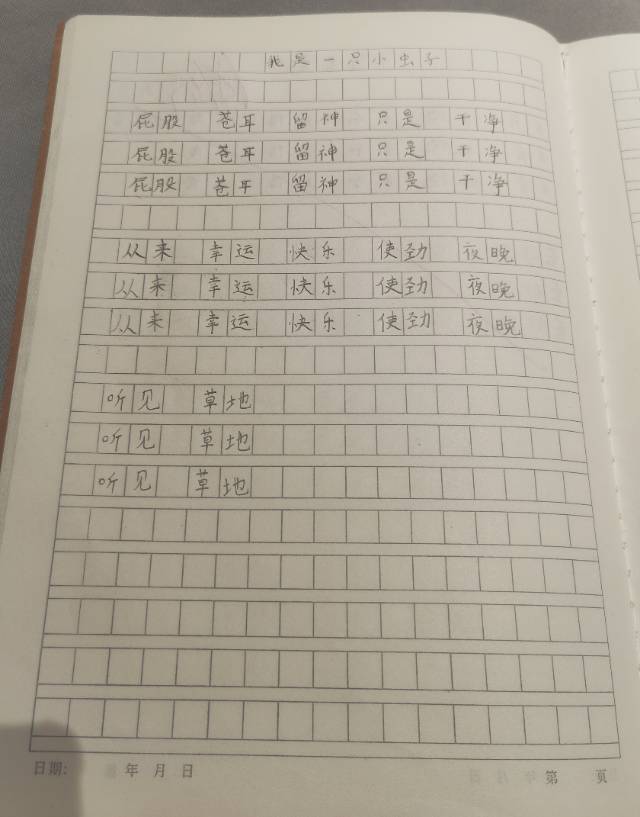 我是一只小虫子
屁股 苍耳 留神 只是 干净
屁股 苍耳 留神 只是 干净
屁股 苍耳 留神 只是 干净
从来 幸运 快乐 使劲 夜晚
从来 幸运 快乐 使劲 夜晚
从来 幸运 快乐 使劲 夜晚
听见 草地
听见 草地
听见 草地
日期: 年 月 日 第 页